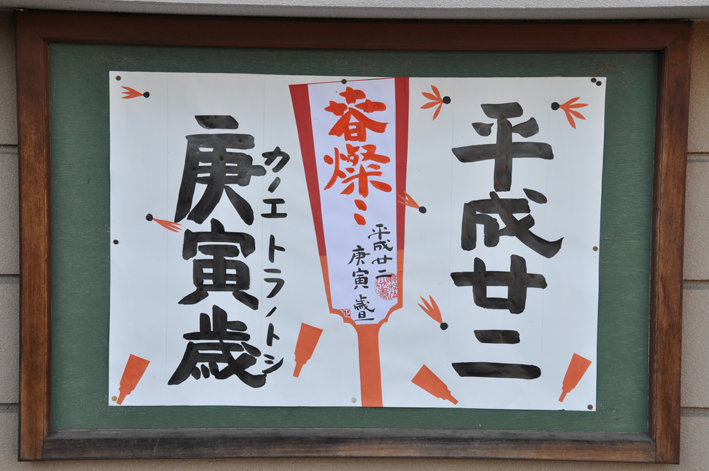 平成廿二
春燦〻
平成廿二
庚寅 歳旦
カノエ トラノトシ
庚寅歳